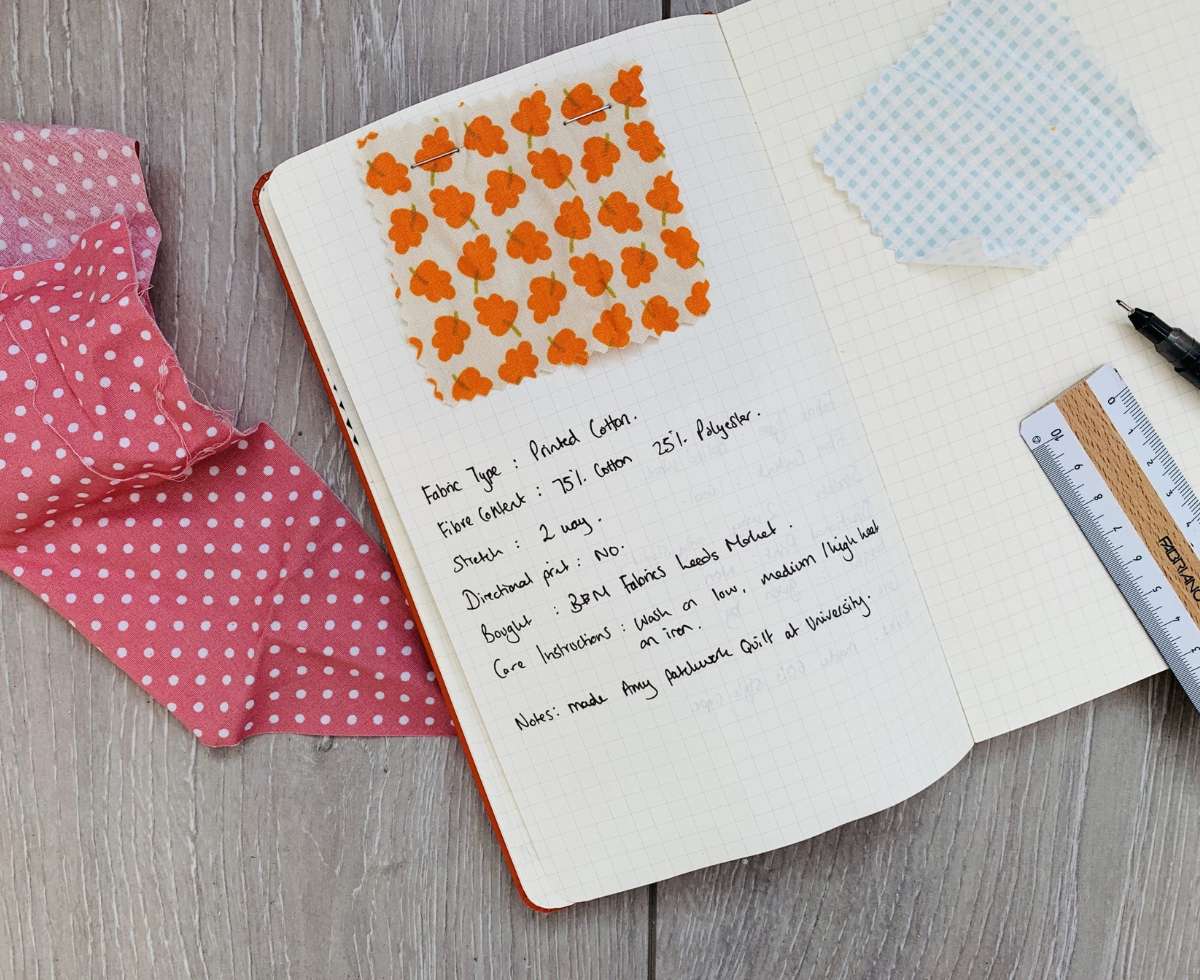 Fabric Type : Printed Cotton.
Fibre Content : 75% Cotton 25% Polyester.
Stretch : 2 way.
Directional print : No.
Bought : B&M Fabrics Leeds Market.
Care Instructions : Wash on low, medium / high heat
on iron.
Notes: made Amy patchwork Quilt at University.
FABRIANO
0 1 2 3
10 9 8 7 6 5 4 3